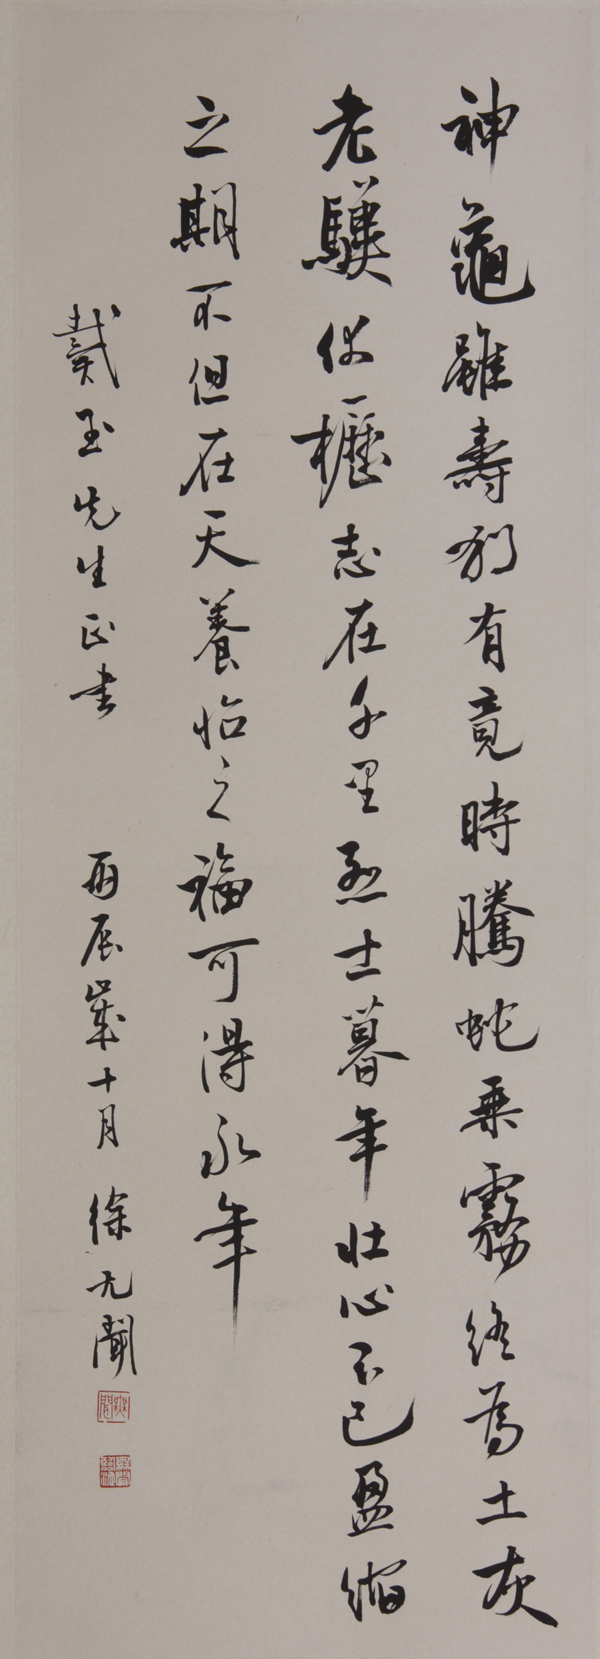 神龜雖壽猶有竟時騰蛇乘霧終為土灰
老驥伏櫪志在千里烈士暮年壯心不已盈縮
之期不但在天養怡之福可得永年
戴玉先生正書
丙辰歲十月 徐无聞